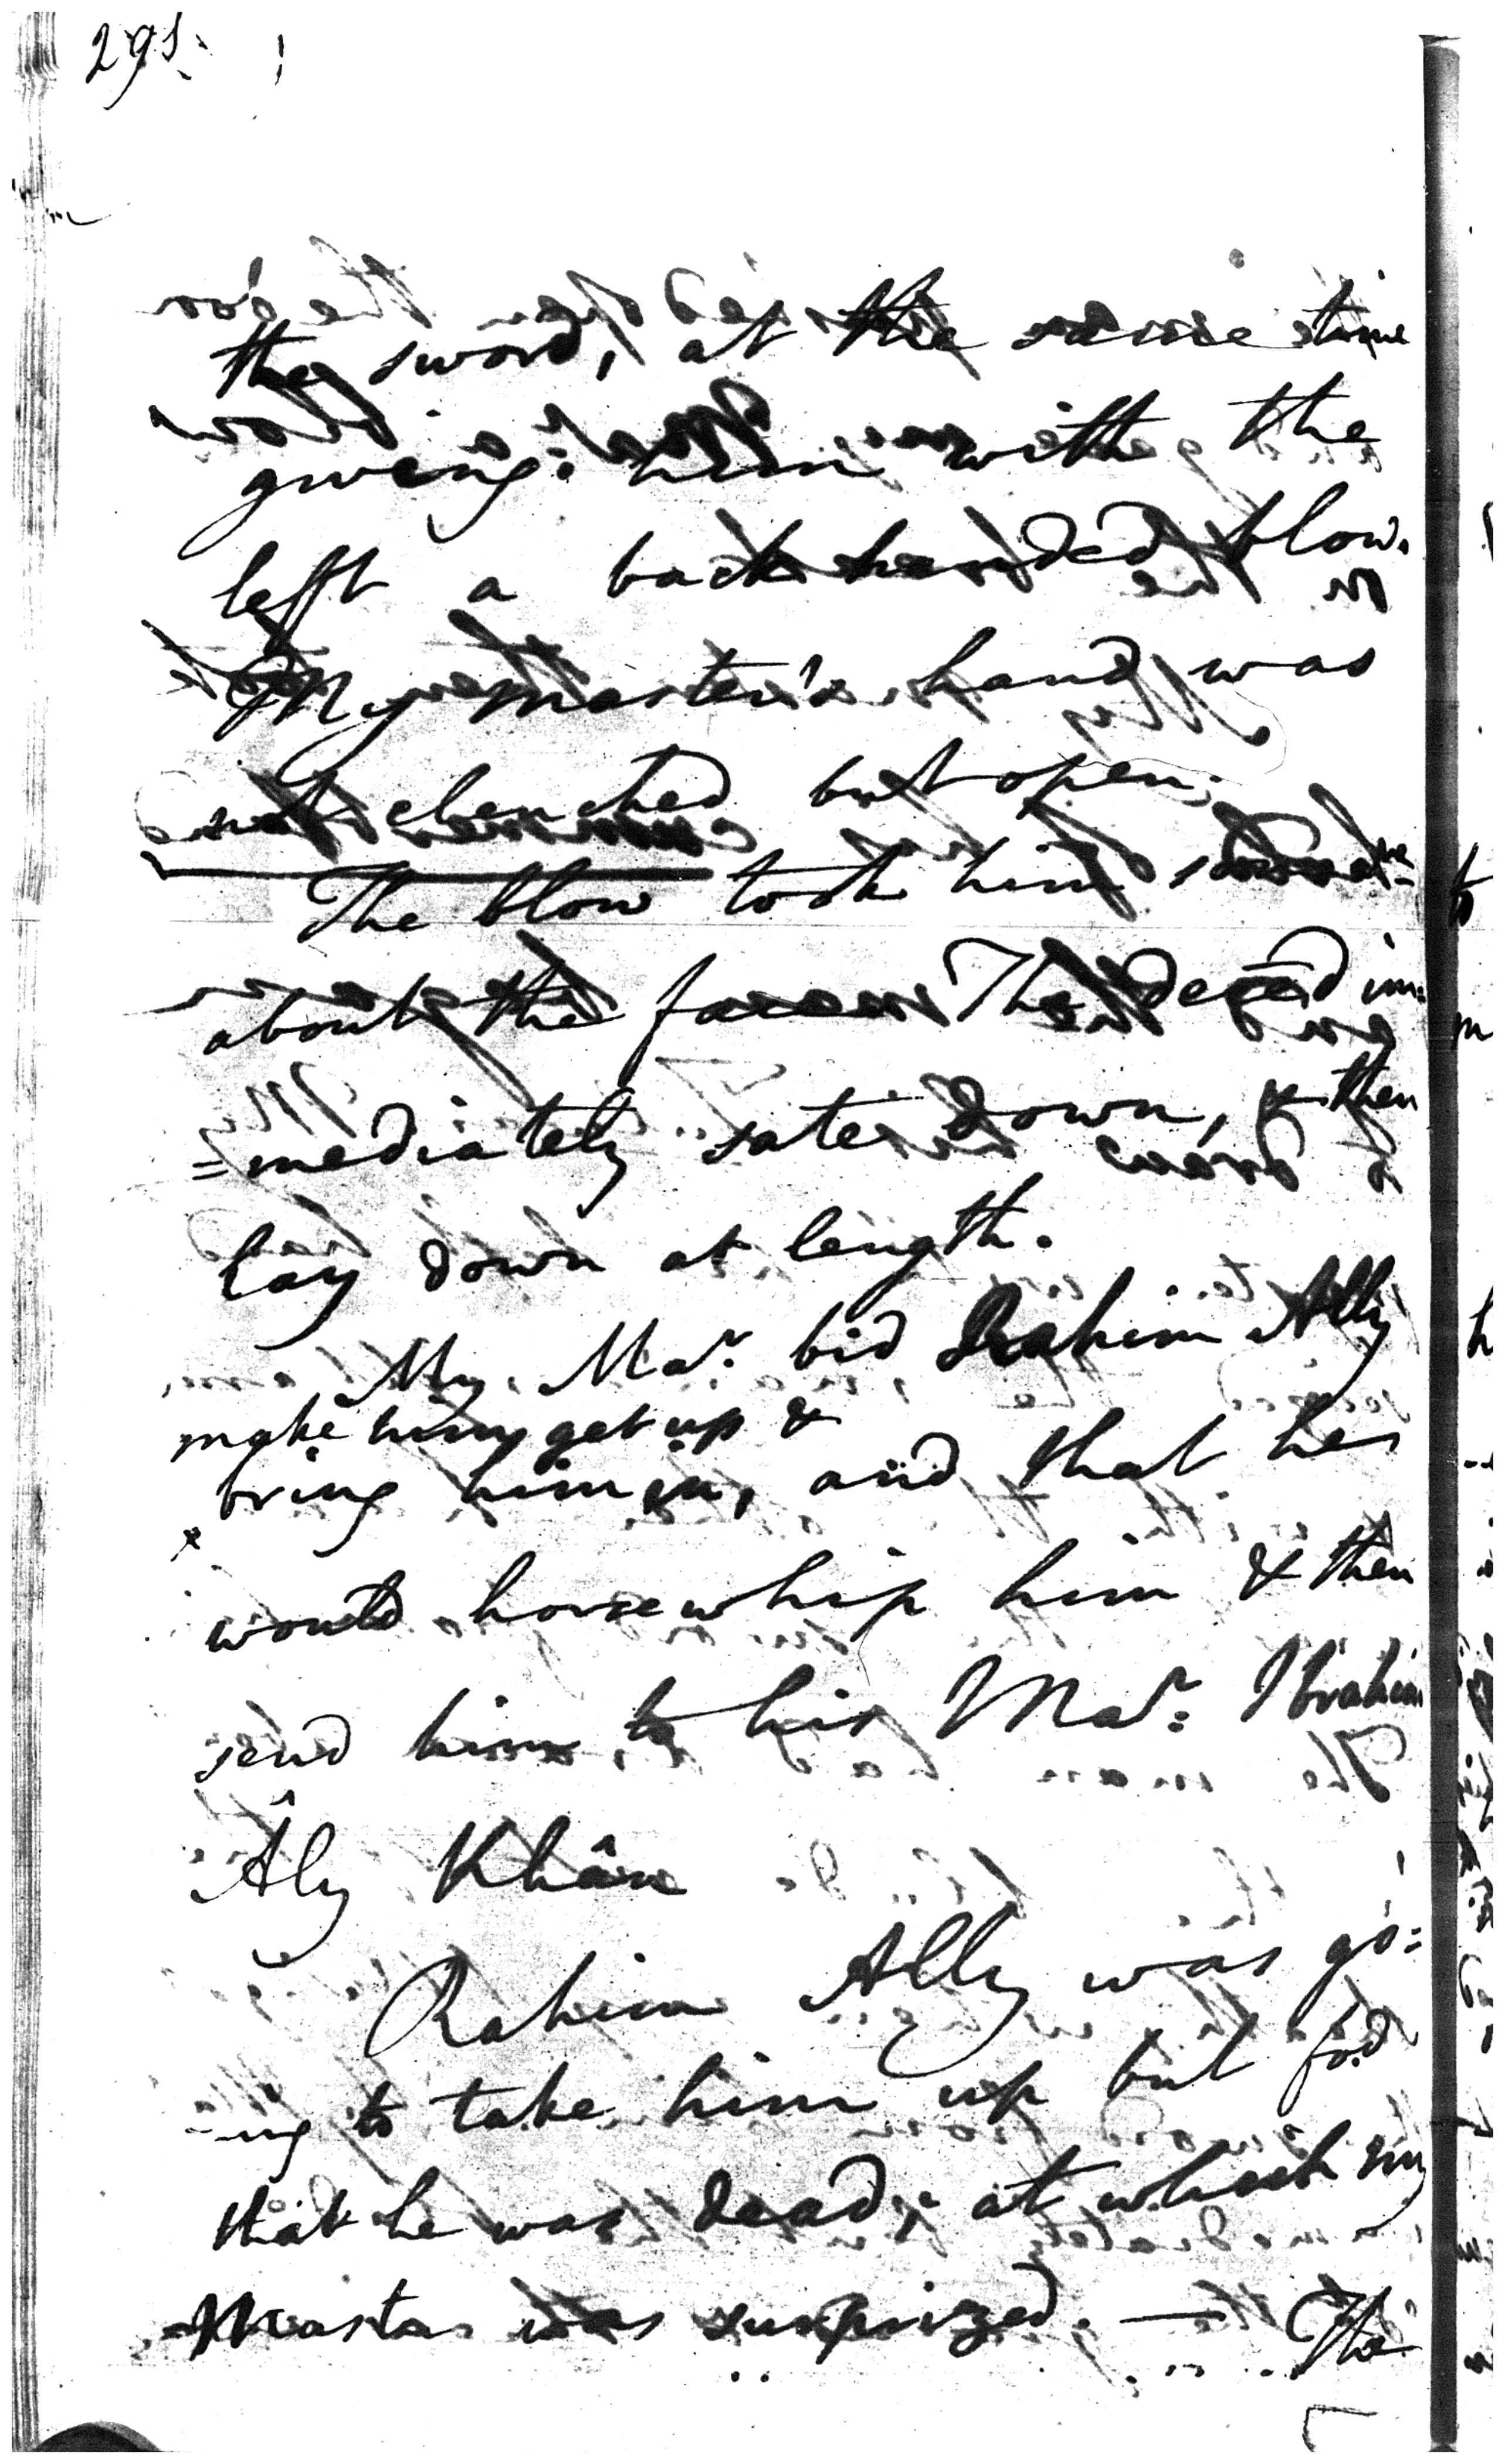 291.
the sword, at the same time
giving him with the
left a back handed blow.
My master's hand was
not clenched but open;
The blow took him somewre
about the face. The deced im:
=mediately sate down, & then
lay down at length.
My Mar: bid Rahim Ally
make him get up &
bring him in, and that he
x
would horsewhip him & then
send him to his Mar: Ibrahim
Âly Khân
Rahim Ally was go=
-ing to take him up but fod
that he was dead, at which my
Master was surprized. — The